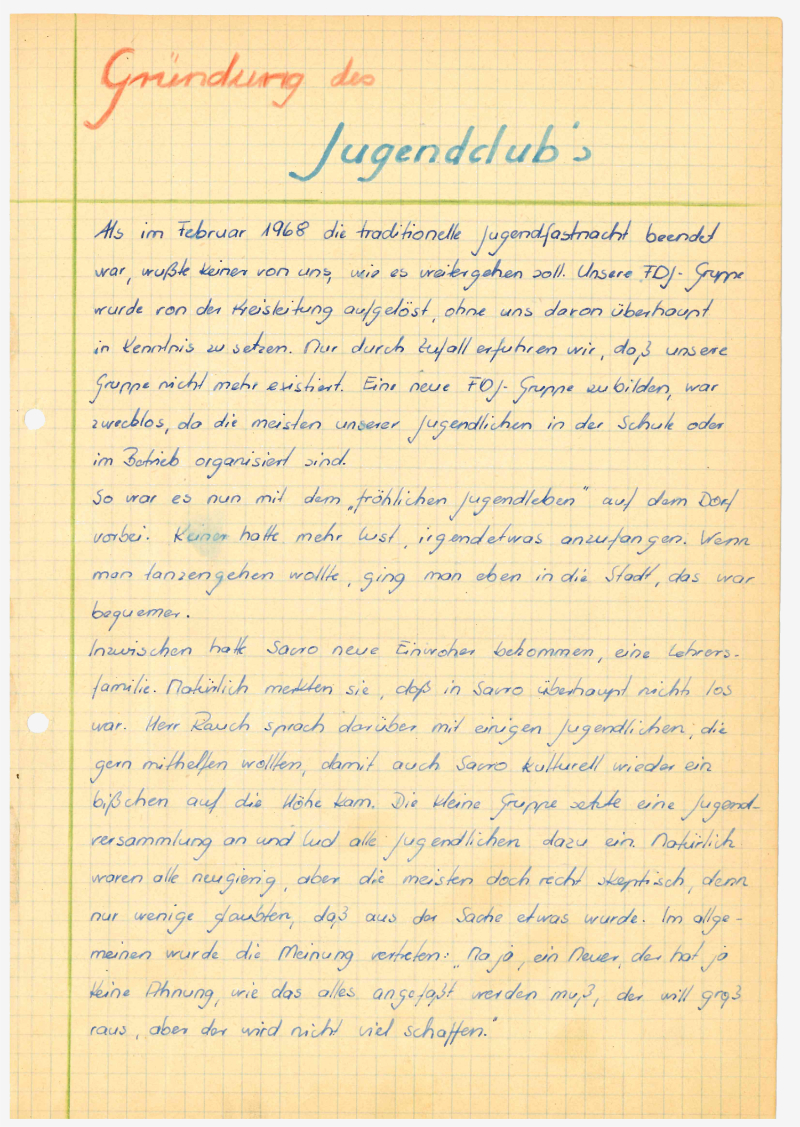 Gründung des
Jugendclub's
Als im Februar 1968 die traditionelle Jugendfastnacht beendet
war, wußte keiner von uns, wie es weitergehen soll. Unsere FDJ-Gruppe
wurde von der Kreisleitung aufgelöst, ohne uns davon überhaupt
in Kenntnis zu setzen. Nur durch Zufall erfuhren wir, daß unsere
Gruppe nicht mehr existiert. Eine neue FDJ-Gruppe zu bilden, war
zwecklos, da die meisten unserer Jugendlichen in der Schule oder
im Betrieb organisiert sind.
So war es nun mit dem „fröhlichen Jugendleben" auf dem Dorf
vorbei. Keiner hatte mehr Lust, irgendetwas anzufangen. Wenn
man tanzengehen wollte, ging man eben in die Stadt, das war
bequemer.
Inzwischen hatte Sacro neue Einwoher bekommen, eine Lehrers-
familie. Natürlich merkten sie, daß in Sacro überhaupt nichts los
war. Herr Rauch sprach darüber mit einigen Jugendlichen, die
gern mithelfen wollten, damit auch Sacro kulturell wieder ein
bißchen auf die Höhe kam. Die kleine Gruppe setzte eine Jugend-
versammlung an und lud alle Jugendlichen dazu ein. Natürlich
waren alle neugierig, aber die meisten doch recht skeptisch, denn
nur wenige glaubten, daß aus der Sache etwas wurde. Im allge-
meinen wurde die Meinung vertreten: „Na ja, ein Neuer, der hat ja
keine Ahnung, wie das alles angefaßt werden muß, der will groß
raus, aber der wird nicht viel schaffen."